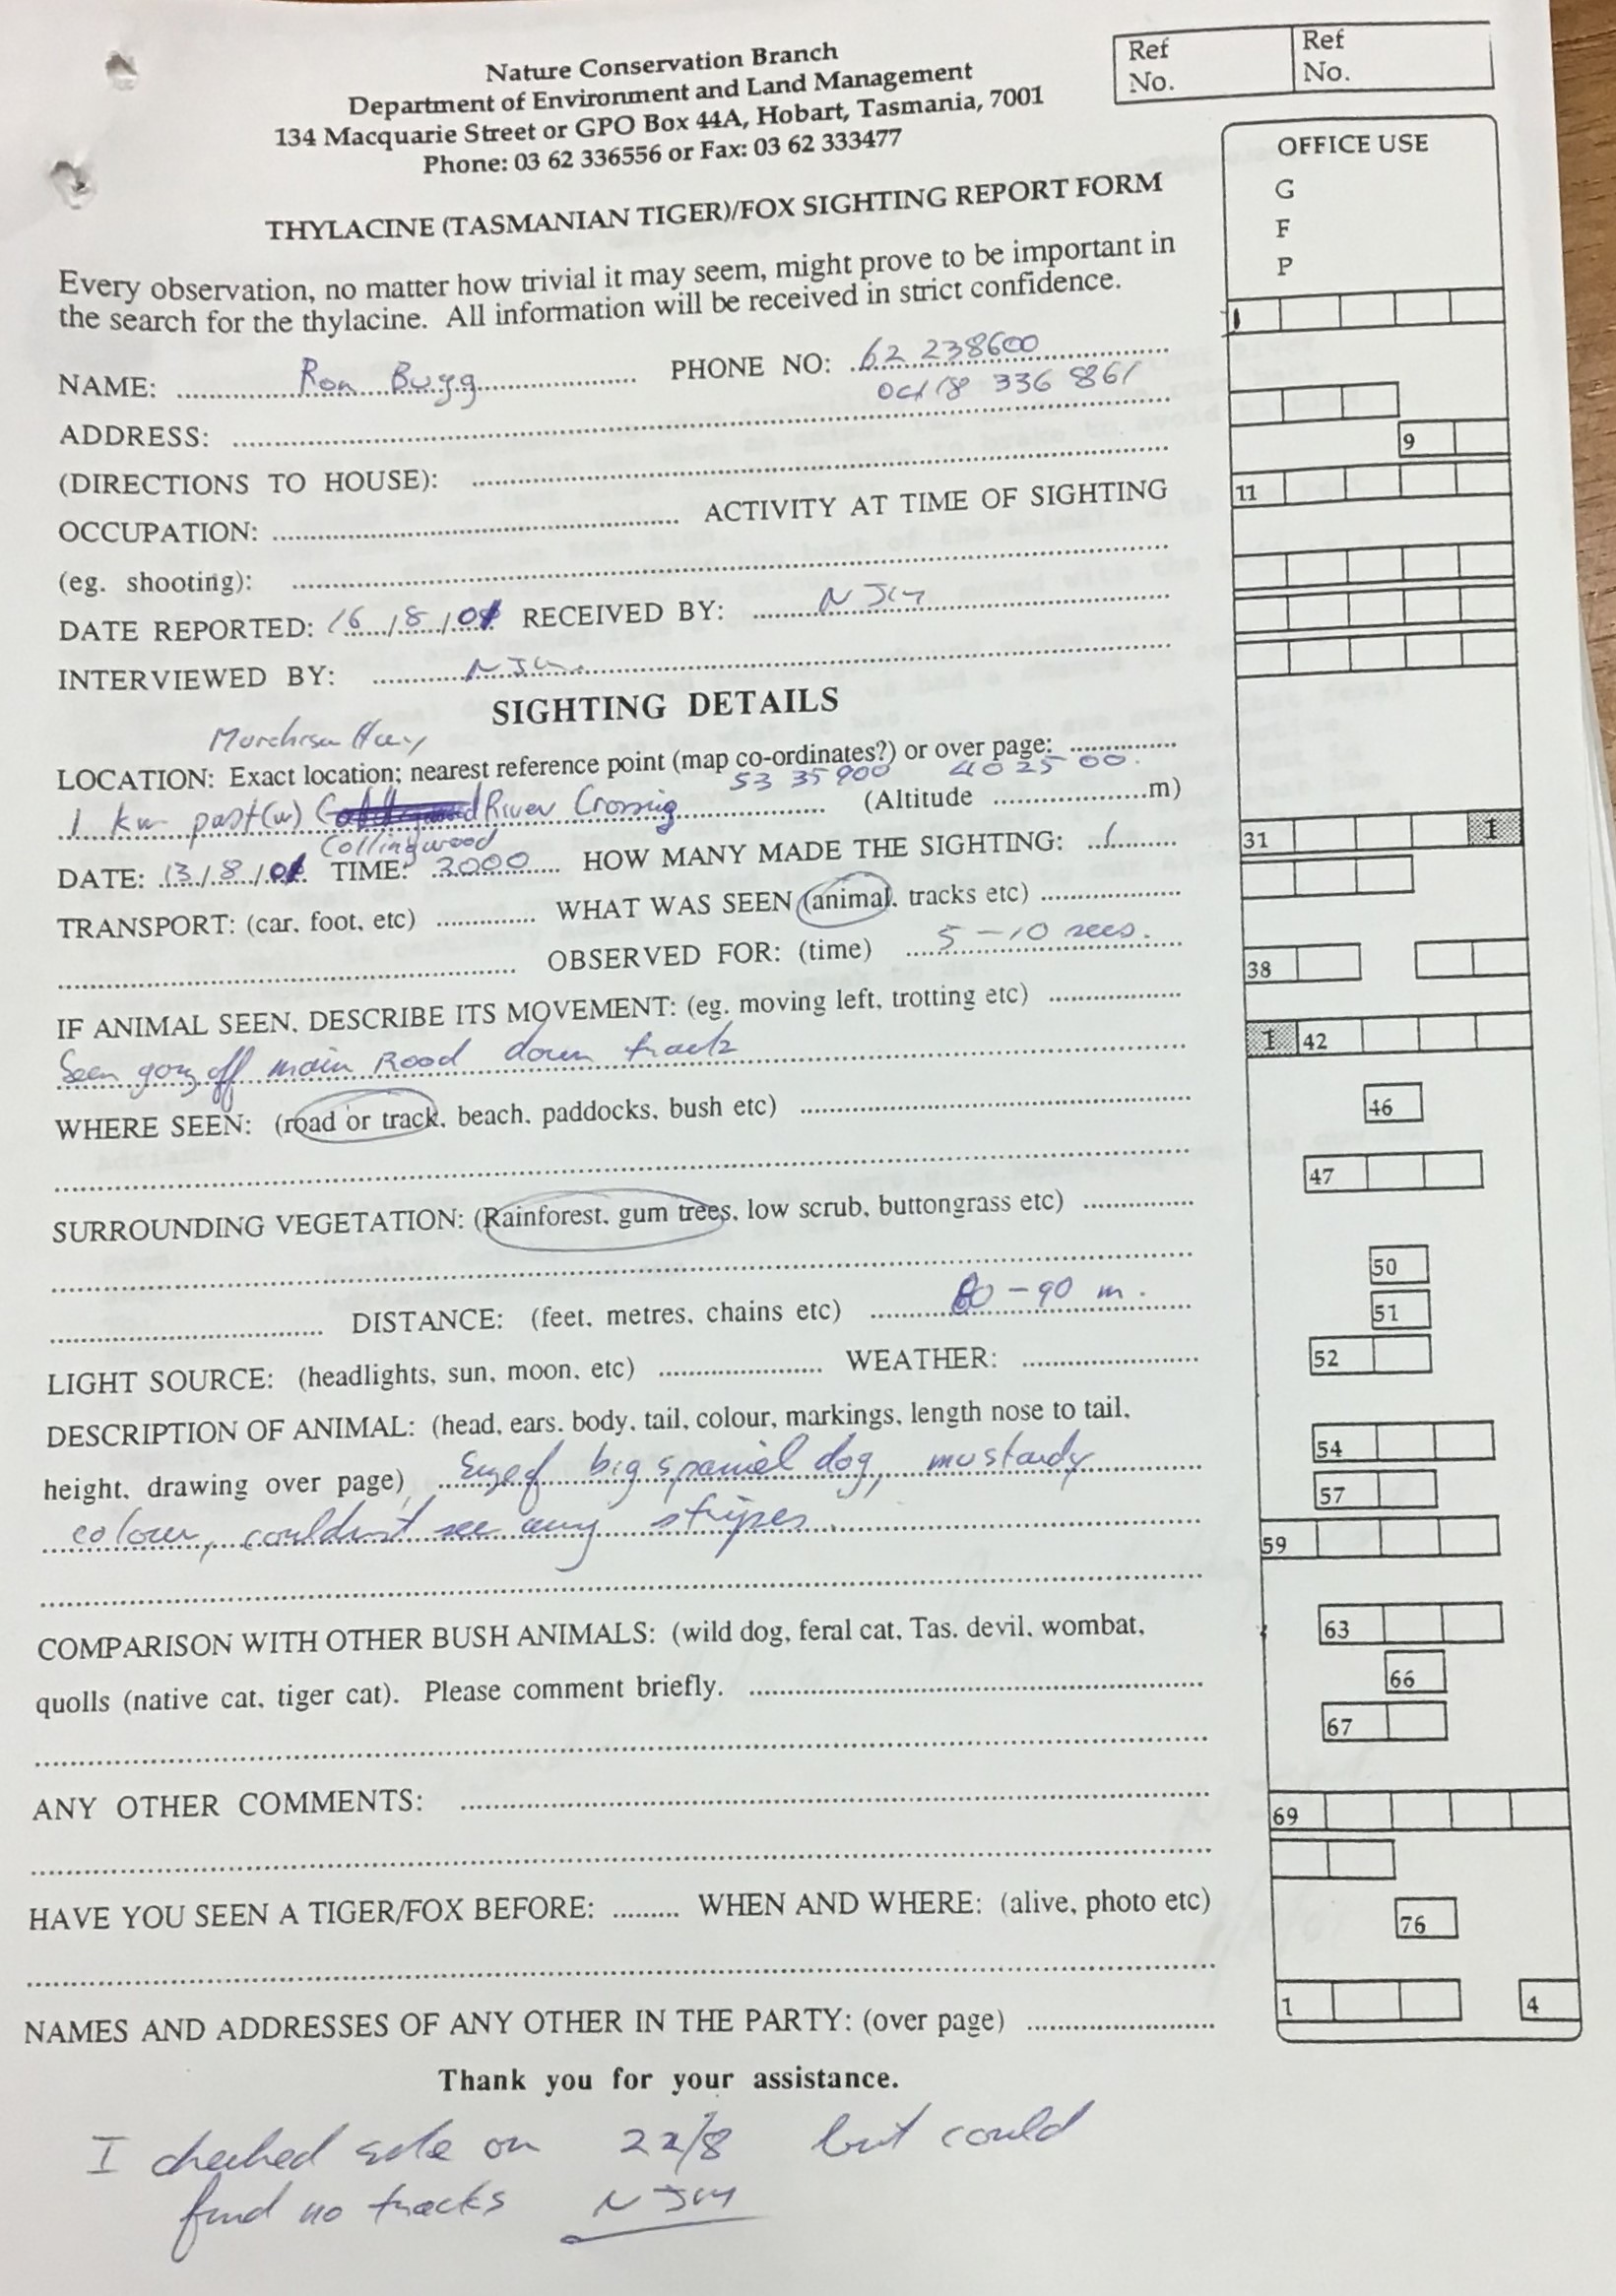 Nature Conservation Branch
Department of Environment and Land Management
134 Macquarie Street or GPO Box 44A, Hobart, Tasmania, 7001
Phone: 03 62 336556 or Fax: 03 62 333477
Ref No.
Ref No.
OFFICE USE
G
F
P
THYLACINE (TASMANIAN TIGER)/FOX SIGHTING REPORT FORM
Every observation, no matter how trivial it may seem, might prove to be important in
the search for the thylacine. All information will be received in strict confidence.
NAME: Ron Bugg PHONE NO: 62 238600
0418 336 861
ADDRESS:
9
(DIRECTIONS TO HOUSE):
11
OCCUPATION: ACTIVITY AT TIME OF SIGHTING
(eg. shooting):
DATE REPORTED: 16/8/01 RECEIVED BY: NJM
INTERVIEWED BY: NJM
SIGHTING DETAILS
Murchison Hwy
LOCATION: Exact location; nearest reference point (map co-ordinates?) or over page:
53 35 900 40 25 00.
1 km past (w) River Crossing (Altitude m)
Collingwood
31 1
DATE: 13/8/01 TIME: 2000 HOW MANY MADE THE SIGHTING: 1
TRANSPORT: (car, foot, etc) WHAT WAS SEEN (animal, tracks etc)
OBSERVED FOR: (time) 5-10 secs.
38
IF ANIMAL SEEN, DESCRIBE ITS MOVEMENT: (eg. moving left, trotting etc)
1 42
Seen going off main Road down track
WHERE SEEN: (road or track, beach, paddocks, bush etc)
46
47
SURROUNDING VEGETATION: (Rainforest, gum trees, low scrub, buttongrass etc)
50
DISTANCE: (feet, metres, chains etc) 80-90 m.
51
LIGHT SOURCE: (headlights, sun, moon, etc) WEATHER:
52
DESCRIPTION OF ANIMAL: (head, ears, body, tail, colour, markings, length nose to tail,
54
height, drawing over page) Size of big spaniel dog, mustardy
57
colour, couldn't see any stripes
59
COMPARISON WITH OTHER BUSH ANIMALS: (wild dog, feral cat, Tas. devil, wombat,
63
quolls (native cat, tiger cat). Please comment briefly.
66
67
ANY OTHER COMMENTS:
69
HAVE YOU SEEN A TIGER/FOX BEFORE: WHEN AND WHERE: (alive, photo etc)
76
NAMES AND ADDRESSES OF ANY OTHER IN THE PARTY: (over page)
1 4
Thank you for your assistance.
I checked site on 22/8 but could
find no tracks NJM